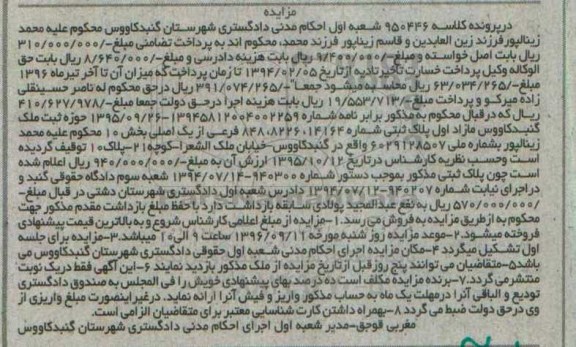 مزایده
درپرونده کلاسه ۹۵۰۴۴۶ شعبه اول احکام مدنی دادگستری شهرستان گنبدکاووس محکوم علیه محمد
زینالپور فرزند زین العابدین و قاسم زینالپور فرزند محمد، محکوم اند به پرداخت تضامنی مبلغ-/۳۱۰/۰۰۰/۰۰۰
ریال بابت اصل خواسته و مبلغ-/۹/۴۰۰/۰۰۰ ریال بابت هزینه دادرسی و مبلغ-/۸/۶۴۰/۰۰۰ ریال بابت حق
الوکاله وکیل پرداخت خسارت تأخیر تادیه از تاریخ ۱۳۹۴/۰۲/۰۵ تا زمان پرداخت که میزان آن تا آخر تیرماه ۱۳۹۶
مبلغ-/۶۳/۰۳۴/۲۶۵ ریال محاسبه میشود جمعا-/۳۹۱/۰۷۴/۲۶۵ ریال درحق محکوم له ناصر حسینقلی
زاده میرکو و پرداخت مبلغ-/۱۹/۵۵۳/۷۱۳ ریال بابت هزینه اجرا درحق دولت جمعا مبلغ-/۴۱۰/۶۲۷/۹۷۸
ریال که درقبال محکوم به مذکور برابر نامه شماره ۱۳۹۴۵۸۱۲۰۰۴۰۰۲۲۵۹-۱۳۹۵/۰۹/۲۶ حوزه ثبت ملک
گنبدکاووس مازاد اول پلاک ثبتی شماره ۸۴۸،۸۲۲۶،۱۴۱۶۴ فرعی از یک اصلی بخش ۱۰ محکوم علیه محمد
زینالپور بشماره ملی ۶۰۲۹۱۲۸۵۰۷ واقع در گنبدکاووس-خیابان ملک الشعرا-کوچه۲۱-پلاک۱۰ توقیف گردیده
است وحسب نظریه کارشناس درتاریخ ۱۳۹۵/۱۰/۱۲ ارزش آن به مبلغ-/۹۴۰/۰۰۰/۰۰۰ ریال اعلام شده
است چون پلاک ثبتی مذکور بموجب دستور شماره ۹۴۰۳۰۰-۱۳۹۴/۰۷/۱۴ شعبه سوم دادگاه حقوقی گنبد و
دراجرای نیابت شماره ۹۴۰۲۰۷-۱۳۹۴/۰۷/۱۲ دادرس شعبه اول دادگستری شهرستان دشتی در قبال مبلغ-
/۵۷۰/۰۰۰/۰۰۰ ریال به نفع عبدالمجید پولادی سابقه بازداشت دارد با حفظ مبلغ بازداشت مقدم مذکور جهت
محکوم به از طریق مزایده به فروش می رسد.۱-مزایده از مبلغ اعلامی کارشناس شروع و به بالاترین قیمت پیشنهادی
فروخته میشود.۲-موعد مزایده روز شنبه مورخه ۱۳۹۶/۰۹/۱۱ ساعت ۹ الی۱۰ میباشد.۳-مزایده برای جلسه
اول تشکیل میگردد ۴-مکان مزایده اجرای احکام مدنی شعبه اول حقوقی دادگستری شهرستان گنبدکاووس می
باشد۵-متقاضیان می توانند پنج روز قبل از تاریخ مزایده از ملک مذکور بازدید نمایند ۶-این آگهی فقط دریک نوبت
منتشر می گردد.۷-برنده مزایده مکلف است ده درصد بهای پیشنهادی خویش را فی المجلس به صندوق دادگستری
تودیع و الباقی آنرا درمهلت یک ماه به حساب مذکور واریز و فیش آنرا ارائه نماید. درغیر اینصورت مبلغ واریزی از
وی درحق دولت ضبط می گردد ۸-بهمراه داشتن کارت شناسایی معتبر برای متقاضیان الزامی است.
مغربی قوجق-مدیر شعبه اول اجرای احکام مدنی دادگستری شهرستان گنبدکاووس